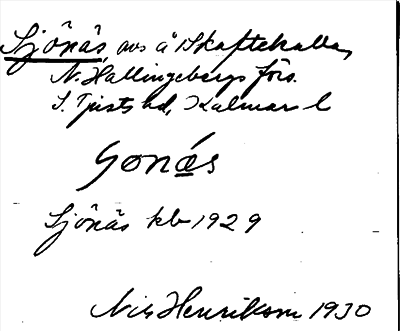 Sjönäs, avs å Skaftekulla,
N. Hallingebergs förs.
S. Tjusts hd, Kalmar l
Sonás
Sjönäs kb 1929
Nils Henrikson 1930